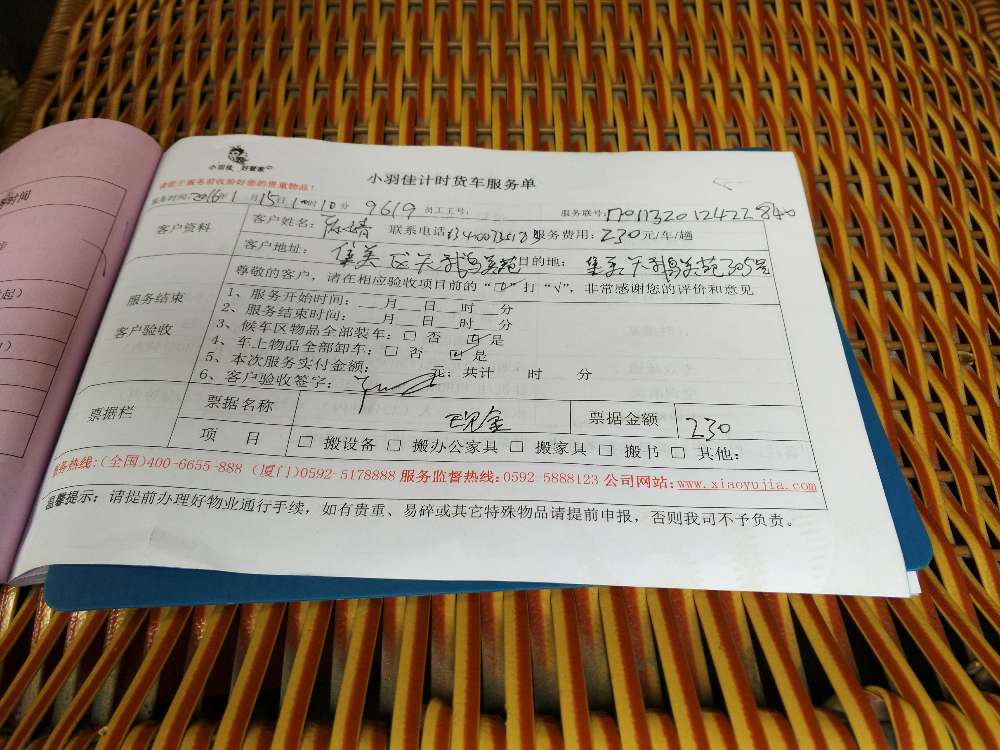 小羽佳 好管家
小羽佳计时货车服务单
请您于服务前收拾好您的贵重物品！
服务时间:2016年1月15日10时10分 9619 员工工号: 服务联号:
客户资料 客户姓名: 联系电话 服务费用:230元/车/趟
客户地址: 集美区天 目的地: 集美 305号
服务结束 客户验收
尊敬的客户，请在相应验收项目前的“□”打“√”，非常感谢您的评价和意见
1、服务开始时间：__月__日__时__分
2、服务结束时间：__月__日__时__分
3、候车区物品全部装车：□ 否 ☑ 是
4、车上物品全部卸车：□ 否 ☑ 是
5、本次服务实付金额: 元; 共计 时 分
6、客户验收签字:
票据栏 票据名称 现金 票据金额 230
项 目 □ 搬设备 □ 搬办公家具 □ 搬家具 □ 搬书 □ 其他:
服务热线:(全国)400-6655-888 (厦门)0592-5178888 服务监督热线:0592-5888123 公司网站:www.xiaoyujia.com
温馨提示: 请提前办理好物业通行手续，如有贵重、易碎或其它特殊物品请提前申报，否则我司不予负责。